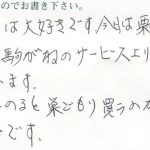 のでお書き下さい。
は大好きです。今日は栗
駒がねのサービスエリ
ます。
のると巣ごもり買うのガ
です。